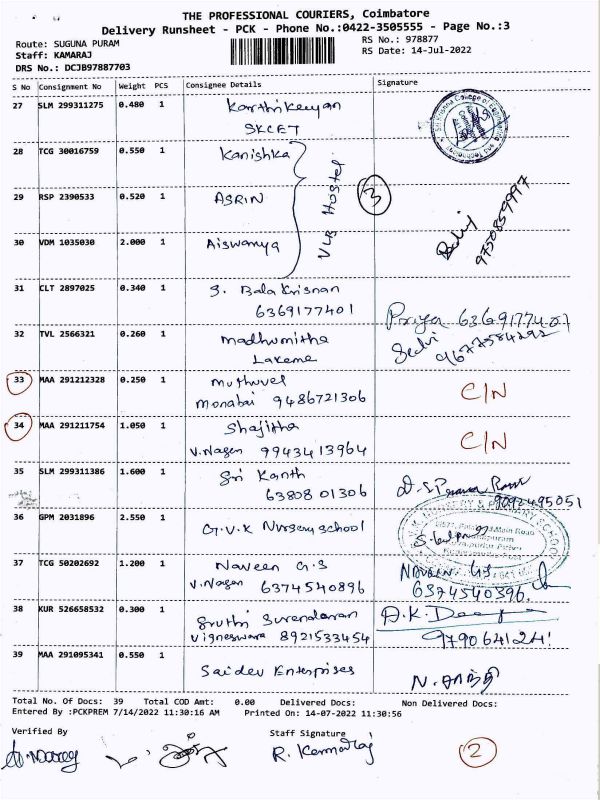 THE PROFESSIONAL COURIERS, Coimbatore
Delivery Runsheet - PCK - Phone No.:0422-3505555 - Page No.:3
Route: SUGUNA PURAM
RS No.: 978877
Staff: KAMARAJ
RS Date: 14-Jul-2022
DRS No.: DCJB97887703
S No Consignment No Weight PCS Consignee Details Signature
27 SLM 299311275 0.480 1 Karthikeyan
SKCET
28 TCG 30016759 0.550 1 Kanishka
VLB Hostel
3
29 RSP 2390533 0.520 1 ASRIN
9750859997
30 VDM 1035030 2.000 1 Aiswarya
31 CLT 2897025 0.340 1 S. Bala Krisnan
6369177401 Priya 6369177401
32 TVL 2566321 0.260 1 Madhumitha
Lakeme Selvi 9677584292
33 MAA 291212328 0.250 1 Muthuvel C/N
Monabai 9486721306
34 MAA 291211754 1.050 1 Shajitha C/N
V.Nagar 9943413964
35 SLM 299311386 1.600 1 Sri Kanth
63808 01306 9092495051
36 GPM 2031896 2.550 1 G.V.K Nursery school
37 TCG 50202692 1.200 1 Naveen G.S Naveen G.S.
V.Nagar 6374540896 6374540396.
38 KUR 526658532 0.300 1 Sruthi Surendaran
Vigneswara 8921533454
39 MAA 291095341 0.550 1 Saidev Enterprises N. சாந்தி
Total No. Of Docs: 39 Total COD Amt: 0.00 Delivered Docs: Non Delivered Docs:
Entered By :PCKPREM 7/14/2022 11:30:16 AM Printed On: 14-07-2022 11:30:56
Verified By Staff Signature
R. Kamaraj 2